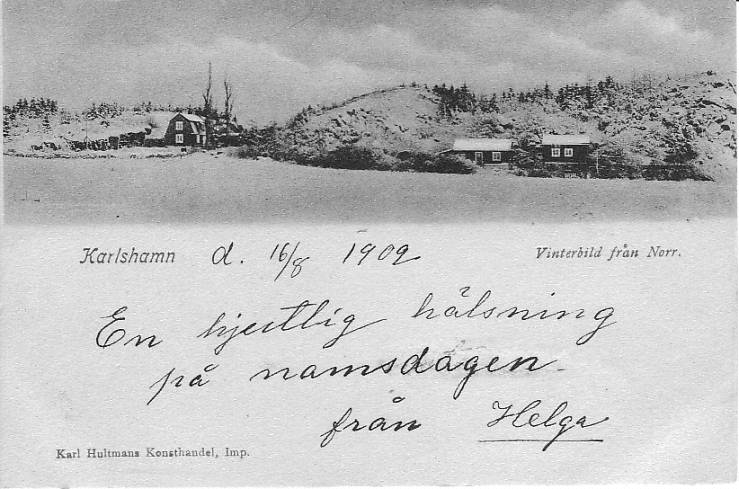 Karlshamn d. 16/8 1902 Vinterbild från Norr.
En hjertlig hälsning
på namsdagen
från Helga
Karl Hultmans Konsthandel, Imp.